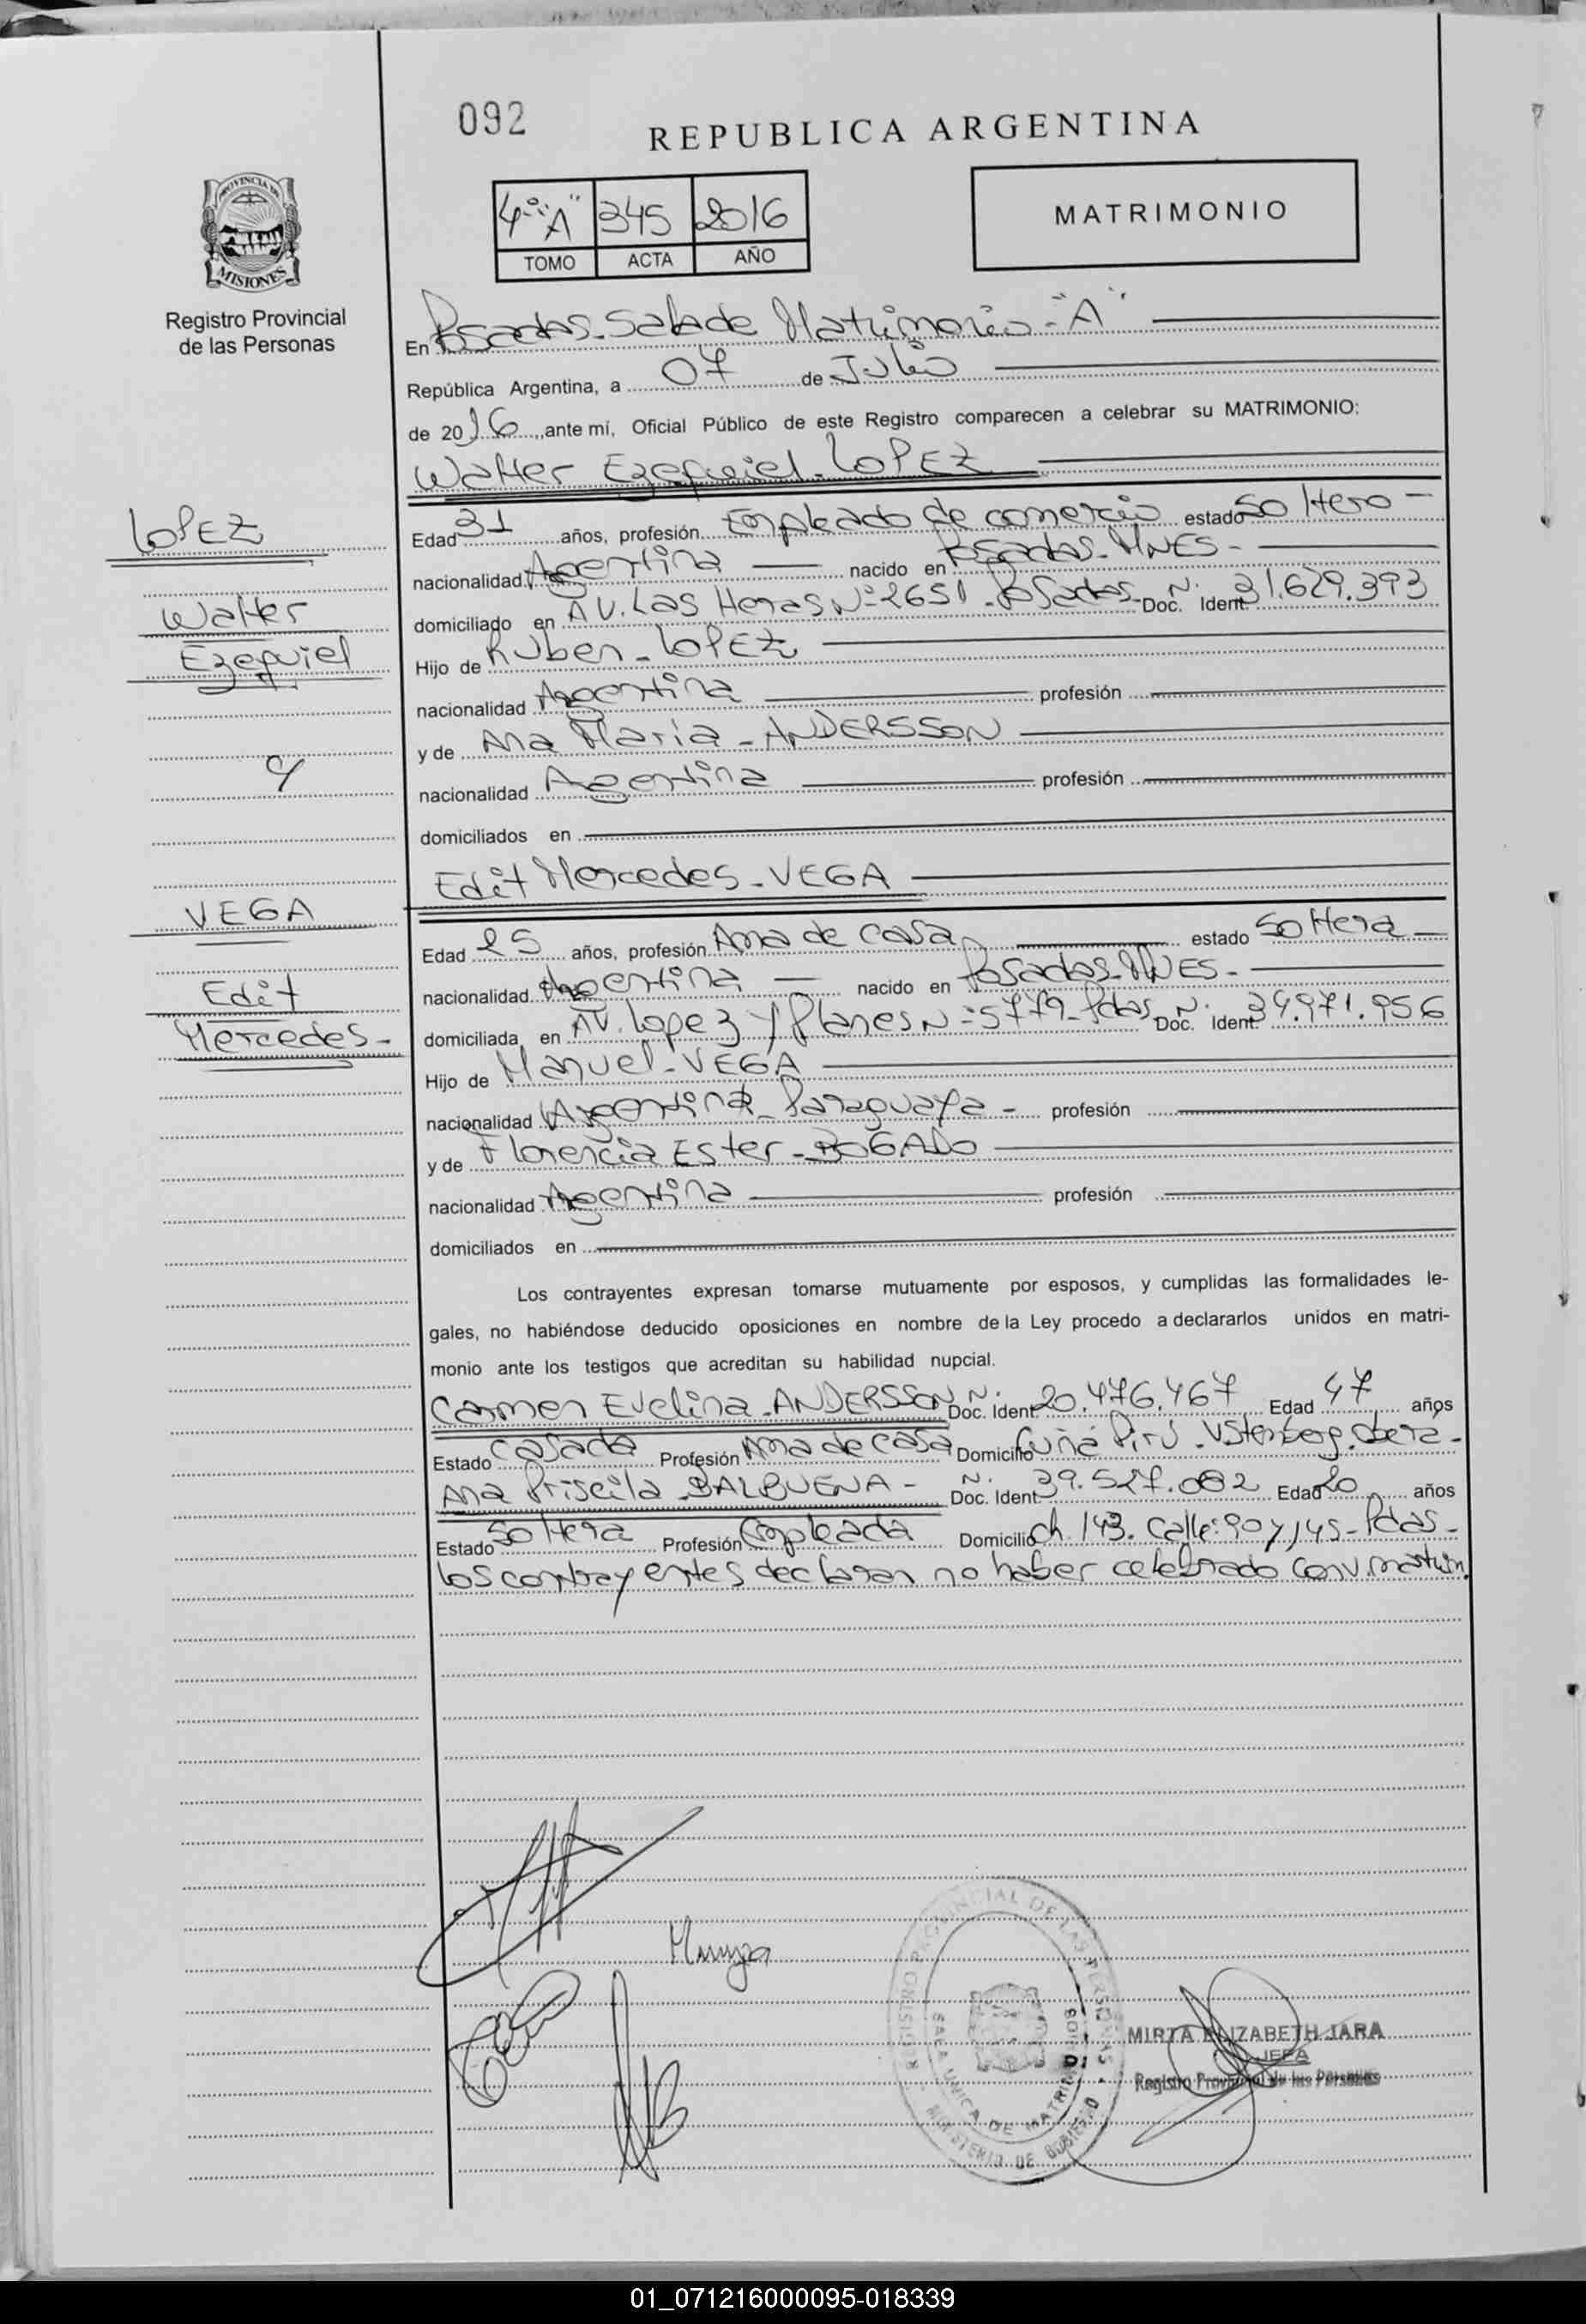 092
REPUBLICA ARGENTINA
PROVINCIA DE
MISIONES
Registro Provincial
de las Personas
4º "A" 345 2016
TOMO ACTA AÑO
MATRIMONIO
En Posadas - Sala de Matrimonio - "A"
República Argentina, a 07 de Julio
de 2016, ante mí, Oficial Público de este Registro comparecen a celebrar su MATRIMONIO:
Walter Ezequiel - LOPEZ
LOPEZ
Walter
Ezequiel
y
VEGA
Edit
Mercedes -
Edad 31 años, profesión Empleado de comercio estado Soltero -
nacionalidad Argentina nacido en Posadas - MNES -
domiciliado en AV. Las Heras Nº 2651 - Posadas - Doc. Ident N: 31.629.393
Hijo de Ruben - LOPEZ
nacionalidad Argentina profesión
y de Ana Maria - ANDERSSON
nacionalidad Argentina profesión
domiciliados en
Edit Mercedes - VEGA
Edad 25 años, profesión Ama de casa estado Soltera -
nacionalidad Argentina nacido en Posadas - MNES -
domiciliada en AV. Lopez y Planes N = 5779 - Pdas Doc. Ident N: 34.971.956
Hijo de Manuel - VEGA
nacionalidad Argentina - Paraguaya - profesión
y de Florencia Ester - BOGADO
nacionalidad Argentina profesión
domiciliados en
Los contrayentes expresan tomarse mutuamente por esposos, y cumplidas las formalidades le-
gales, no habiéndose deducido oposiciones en nombre de la Ley procedo a declararlos unidos en matri-
monio ante los testigos que acreditan su habilidad nupcial.
Carmen Evelina - ANDERSSON Doc. Ident N: 20.476.467 Edad 47 años
Estado Casada Profesión Ama de casa Domicilio Cuña Pirú - Ustenberg. Oberá -
Ana Priscila - BALBUENA - Doc. Ident N: 39.527.082 Edad 20 años
Estado Soltera Profesión Empleada Domicilio Ch. 143. Calle: 90 y 145 - Pdas -
Los contrayentes declaran no haber celebrado conv. matrim.
REGISTRO PROVINCIAL DE LAS PERSONAS
SALA UNICA DE MATRIMONIOS
MINISTERIO DE GOBIERNO
MIRTA ELIZABETH JARA
JEFA
Registro Provincial de las Personas
01_071216000095-018339